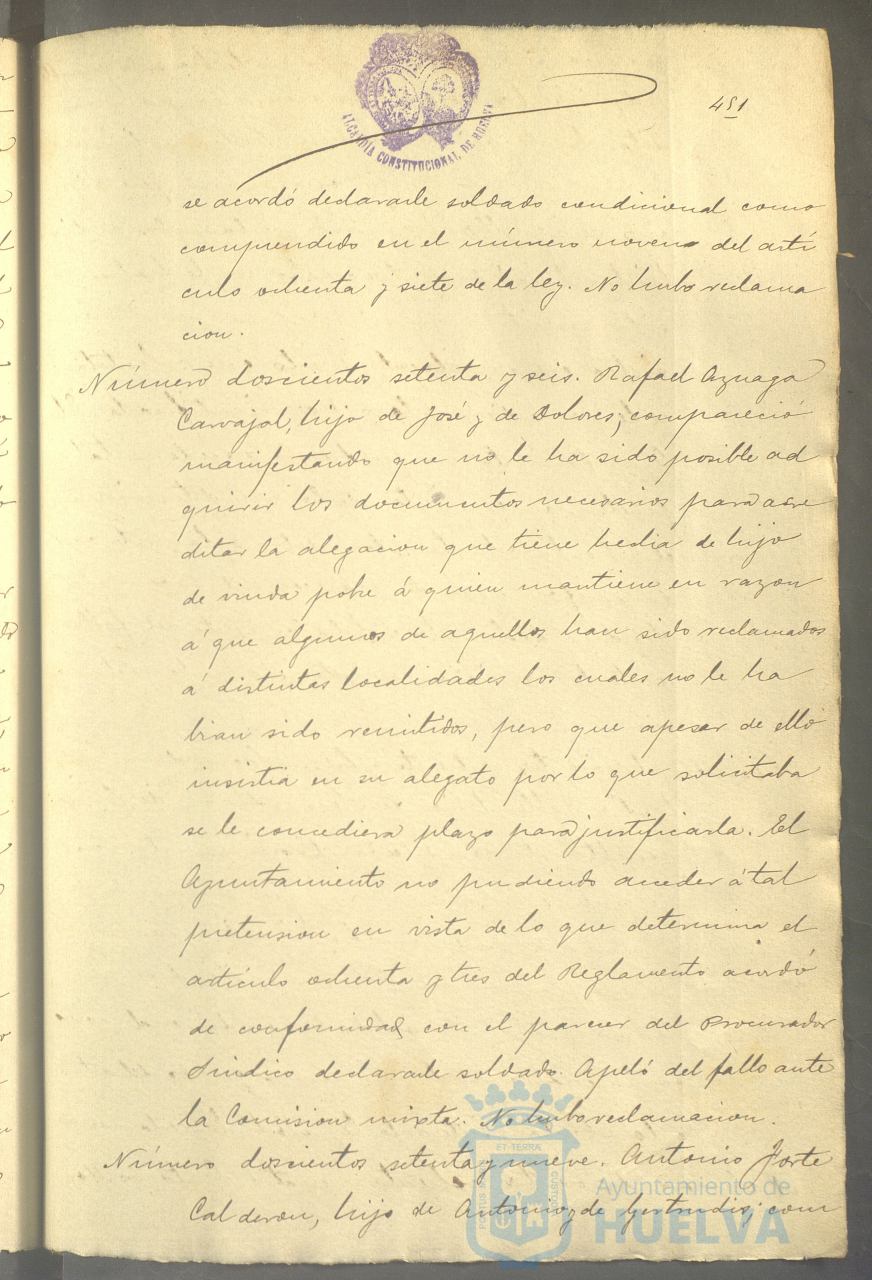 451
ALCALDÍA CONSTITUCIONAL DE HUELVA
se acordó declararle soldado condicional como
comprendido en el número noveno del artí
culo ochenta y siete de la ley. No hubo reclama
cion.
Número doscientos setenta y seis. Rafael Aznaga
Carvajal, hijo de José y de Dolores, compareció
manifestando que no le ha sido posible ad
quirir los documentos necesarios para acre
ditar la alegacion que tiene hecha de hijo
de viuda pobre á quien mantiene en razon
á que algunos de aquellos han sido reclamados
á distintas localidades los cuales no le ha
bian sido remitidos, pero que apesar de ello
insistia en su alegato por lo que solicitaba
se le concediera plazo para justificarla. El
Ayuntamiento no pudiendo acceder á tal
pretension en vista de lo que determina el
artículo ochenta y tres del Reglamento acordó
de conformidad con el parecer del Procurador
Sindico declararle soldado. Apeló del fallo ante
la Comision mixta. No hubo reclamacion.
Número doscientos setenta y nueve. Antonio Forte
Calderon, hijo de Antonio y de Gertrudis, com
ET TERRÆ
PORTUS
CUSTODIA
Ayuntamiento de
HUELVA